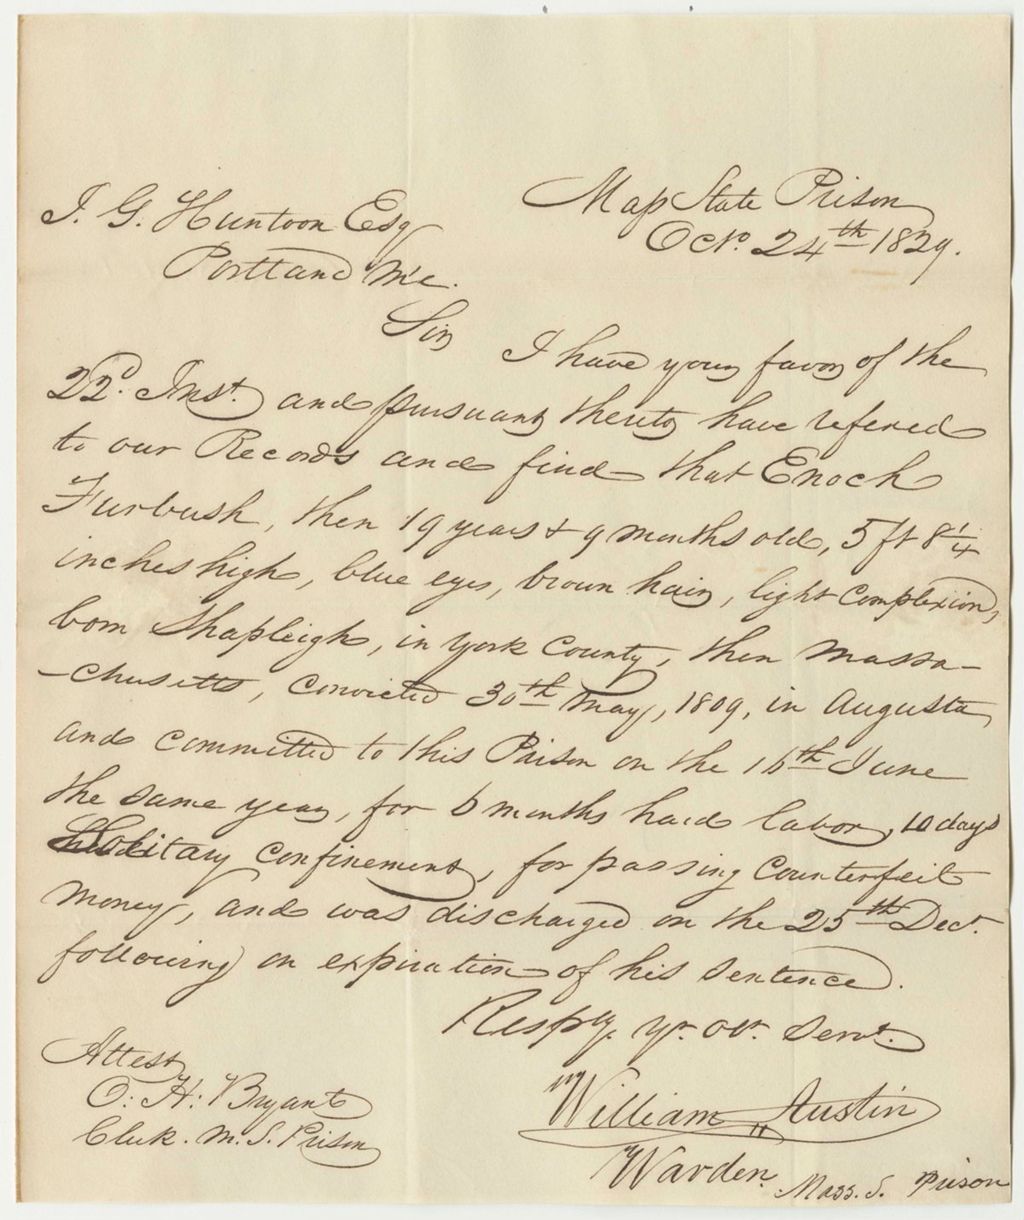 Mass State Prison
Oct. 24th 1829.
J. G. Huntoon Esq
Portland Me.
Sir I have your favor of the
22d. Inst. and pursuant thereto have refered
to our Records and find that Enoch
Furbush, then 19 years & 9 months old, 5 ft 8 1/4
inches high, blue eyes, brown hair, light complexion,
born Shapleigh, in York County, then Massa-
-chusetts, convicted 30th May, 1809, in Augusta,
and committed to this Prison on the 16th June
the same year, for 6 months hard labor, 10 days
Solitary confinement, for passing Counterfeit
money, and was discharged on the 25th Dec.
following on expiration of his sentence.
Respy. yr. obt. servt.
William Austin
Warden. Mass. S. Prison
Attest
O: H: Bryant
Clerk. M. S. Prison